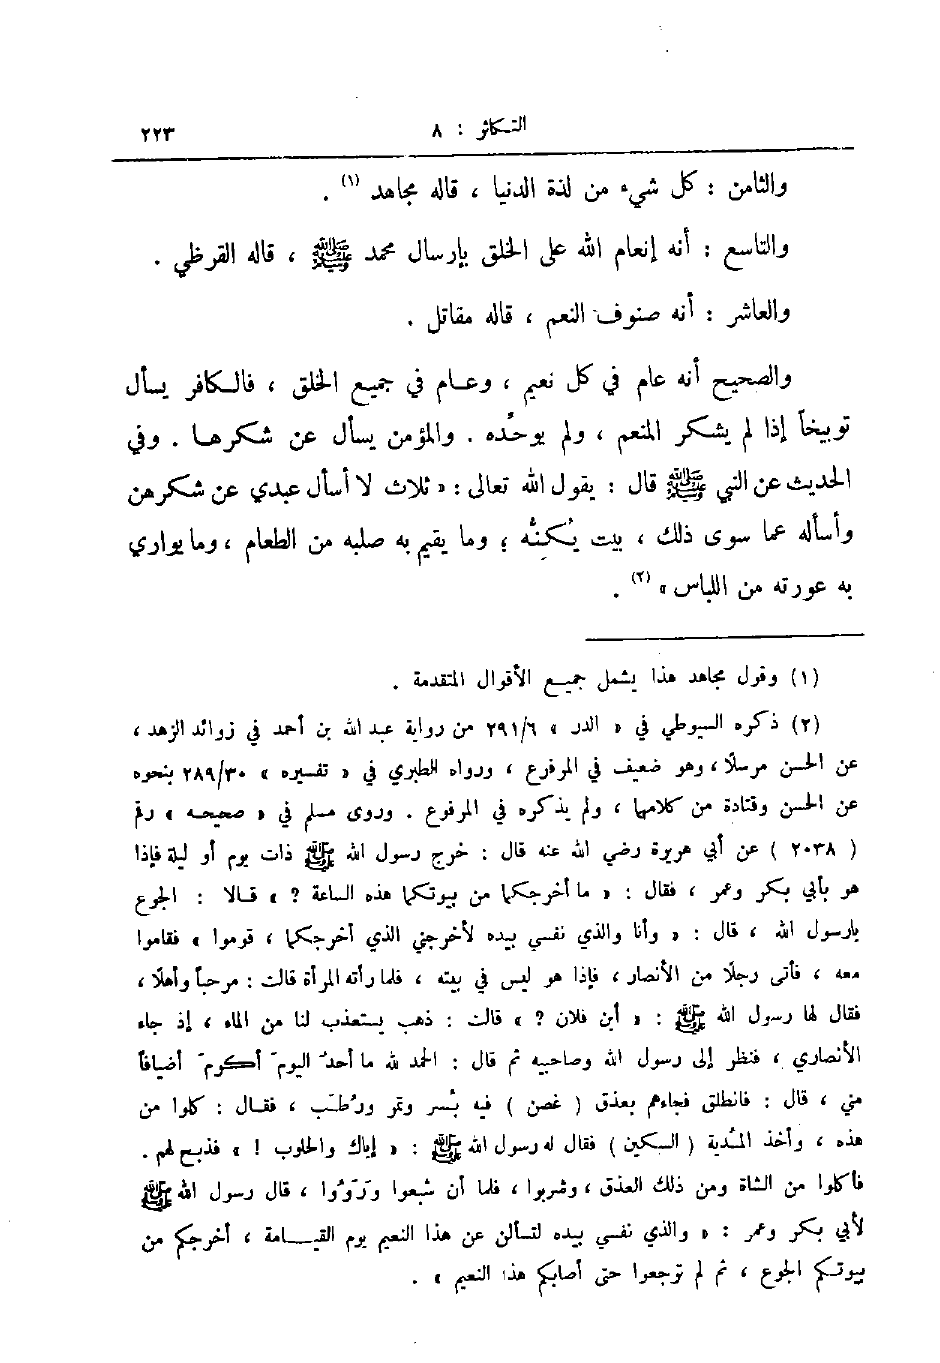 التكاثر : ٨ ٢٢٣
والثامن : كل شيء من لذة الدنيا ، قاله مجاهد (١) .
والتاسع : أنه إنعام الله على الخلق بإرسال محمد ﷺ ، قاله القرظي .
والعاشر : أنه صنوف النعم ، قاله مقاتل .
والصحيح أنه عام في كل نعيم ، وعام في جميع الخلق ، فالكافر يسأل
توبيخاً إذا لم يشكر المنعم ، ولم يوحِّده . والمؤمن يسأل عن شكرها . وفي
الحديث عن النبي ﷺ قال : يقول الله تعالى : « ثلاث لا أسأل عبدي عن شكرهن
وأسأله عما سوى ذلك ، بيت يُكِنُّه ؛ وما يقيم به صلبه من الطعام ، وما يواري
به عورته من اللباس » (٢) .
(١) وقول مجاهد هذا يشمل جميع الأقوال المتقدمة .
(٢) ذكره السيوطي في « الدر » ٢٩١/٦ من رواية عبد الله بن أحمد في زوائد الزهد ،
عن الحسن مرسلًا ، وهو ضعيف في المرفوع ، ورواه الطبري في « تفسيره » ٢٨٩/٣٠ بنحوه
عن الحسن وقتادة من كلامها ، ولم يذكره في المرفوع . وروى مسلم في « صحيحه » رقم
( ٢٠٣٨ ) عن أبي هريرة رضي الله عنه قال : خرج رسول الله ﷺ ذات يوم أو ليلة فإذا
هو بأبي بكر وعمر ، فقال : « ما أخرجكما من بيوتكما هذه الساعة ? » قالا : الجوع
يارسول الله ، قال : « وأنا والذي نفسي بيده لأخرجني الذي أخرجكما ، قوموا » فقاموا
معه ، فأتى رجلًا من الأنصار ، فإذا هو ليس في بيته ، فلما رأته المرأة قالت : مرحباً وأهلًا ،
فقال لها رسول الله ﷺ : « أين فلان ? » قالت : ذهب يستعذب لنا من الماء ، إذ جاء
الأنصاري ، فنظر إلى رسول الله وصاحبيه ثم قال : الحمد لله ما أحدٌ اليومَ أكرمَ أضيافاً
مني ، قال : فانطلق فجاءهم بعذق ( غصن ) فيه بُسر وتمر ورُطَب ، فقال : كلوا من
هذه ، وأخذ المُدية ( السكين ) فقال له رسول الله ﷺ : « إياك والحلوب ! » فذبح لهم .
فأكلوا من الشاة ومن ذلك العذق ، وشربوا ، فلما أن شبعوا ورَوُوا ، قال رسول الله ﷺ
لأبي بكر وعمر : « والذي نفسي بيده لتسألن عن هذا النعيم يوم القيامة ، أخرجكم من
بيوتكم الجوع ، ثم لم ترجعوا حتى أصابكم هذا النعيم » .